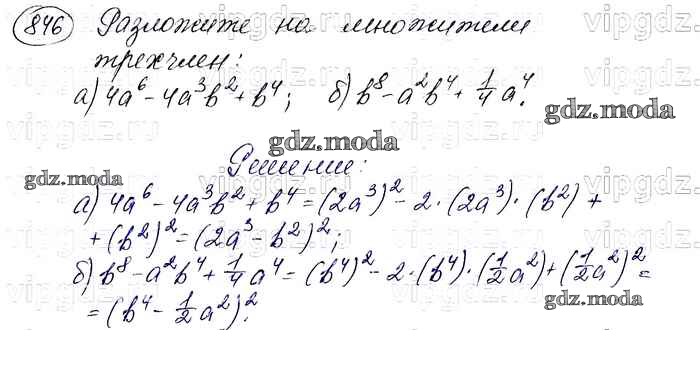 846 Разложите на множители
трехчлен:
а) 4a⁶ - 4a³b² + b⁴; б) b⁸ - a²b⁴ + 1/4 a⁴.
gdz.moda
gdz.moda
Решение:
gdz.moda
а) 4a⁶ - 4a³b² + b⁴ = (2a³)² - 2·(2a³)·(b²) +
+ (b²)² = (2a³ - b²)²;
б) b⁸ - a²b⁴ + 1/4 a⁴ = (b⁴)² - 2·(b⁴)·(1/2 a²) + (1/2 a²)² =
gdz.moda
= (b⁴ - 1/2 a²)².